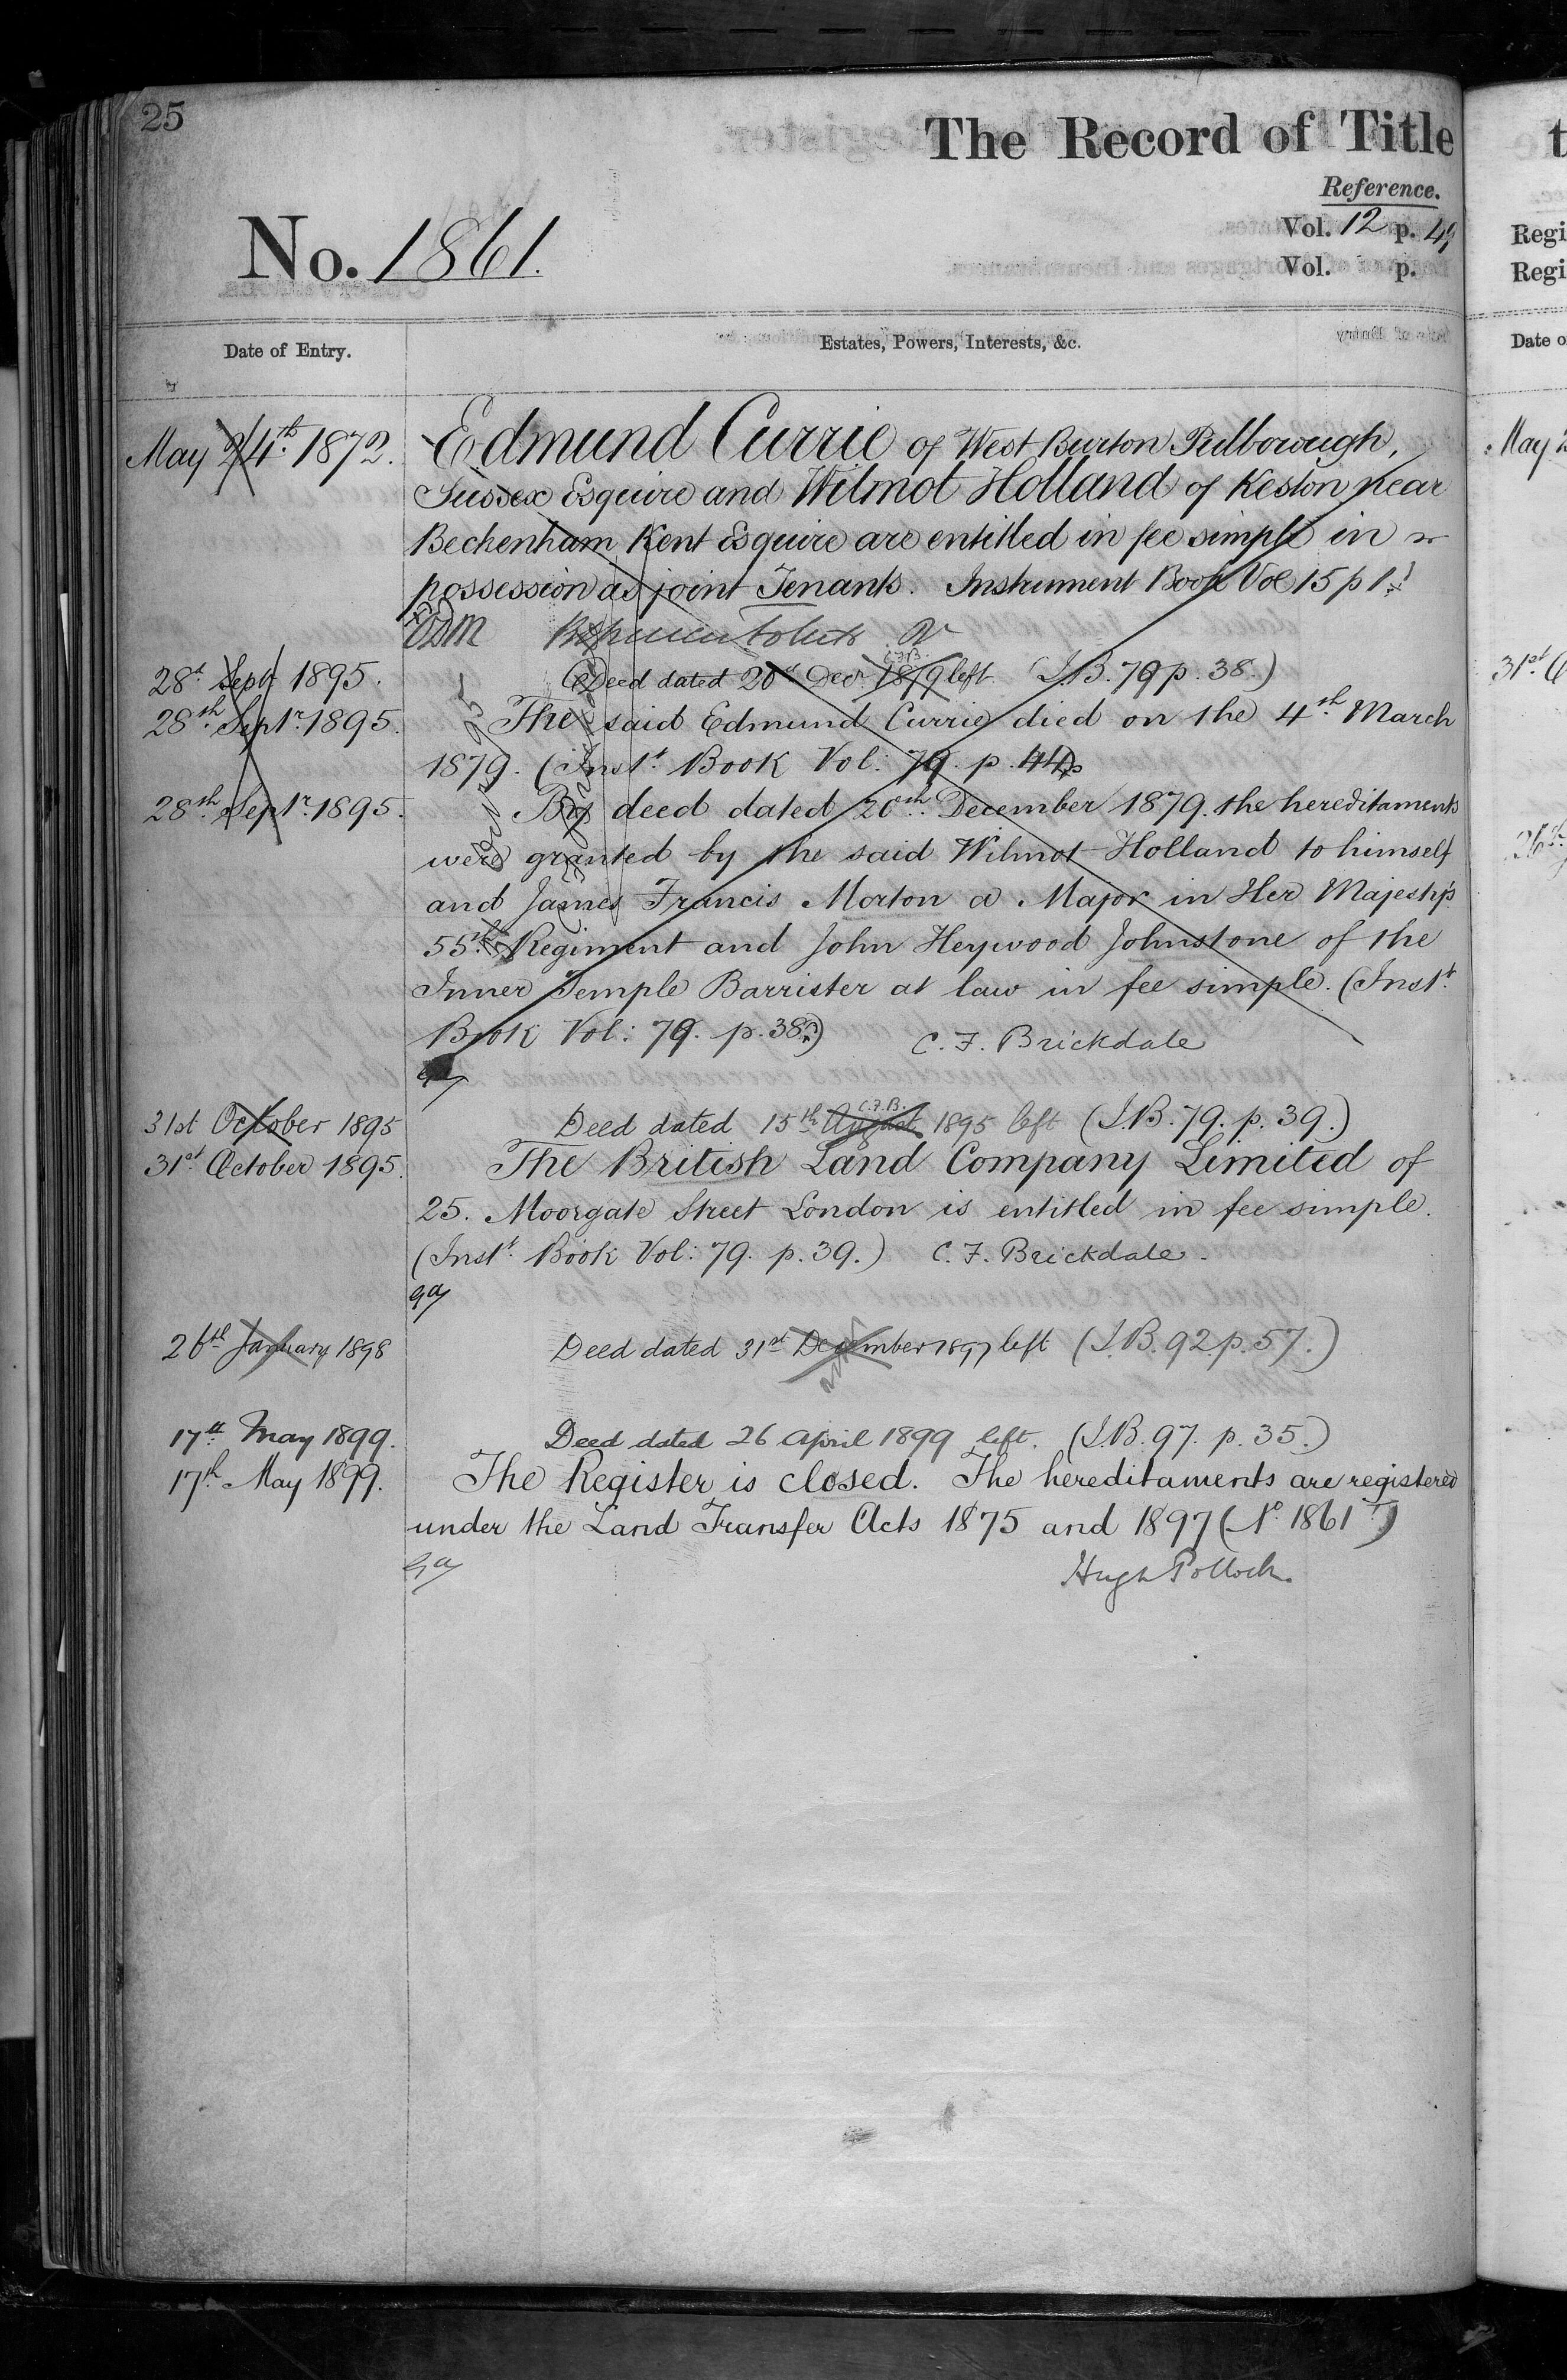 25
The Record of Title
Reference.
No. 1861.
Vol. 12 p. 49
Vol. p.
Date of Entry.
Estates, Powers, Interests, &c.
May 24th. 1872.
Edmund Currie of West Burton Pulborough,
Sussex Esquire and Wilmot Holland of Keston near
Beckenham Kent Esquire are entitled in fee simple in
possession as joint Tenants. Instrument Book Vol 15 p 1.
28t Sept 1895.
Deed dated 20th Decr 1879 left (I.B. 79 p. 38.)
C.F.B.
28th. Septr. 1895.
The said Edmund Currie died on the 4th. March
1879. (Instt. Book Vol: 79. p. 44)
28th. Septr. 1895.
By deed dated 20th. December 1879. the hereditaments
were granted by the said Wilmot Holland to himself
and James Francis Morton a Major in Her Majesty's
55th. Regiment and John Heywood Johnstone of the
Inner Temple Barrister at law in fee simple. (Instt.
Book Vol: 79. p. 38.)
C. F. Brickdale
31st October 1895
Deed dated 15th August 1895 left (I.B. 79. p. 39.)
C.F.B.
31st. October 1895.
The British Land Company Limited of
25. Moorgate Street London is entitled in fee simple.
(Instt. Book Vol: 79. p. 39.) C. F. Brickdale.
26th January 1898
Deed dated 31st December 1897 left (I.B. 92. p. 57.)
17th May 1899.
Deed dated 26 April 1899 left. (I.B. 97. p. 35.)
17th. May 1899.
The Register is closed. The hereditaments are registered
under the Land Transfer Acts 1875 and 1897 (No. 1861T)
Hugh Pollock.
t
Regi
Regi
Date o
May 2
31st. O